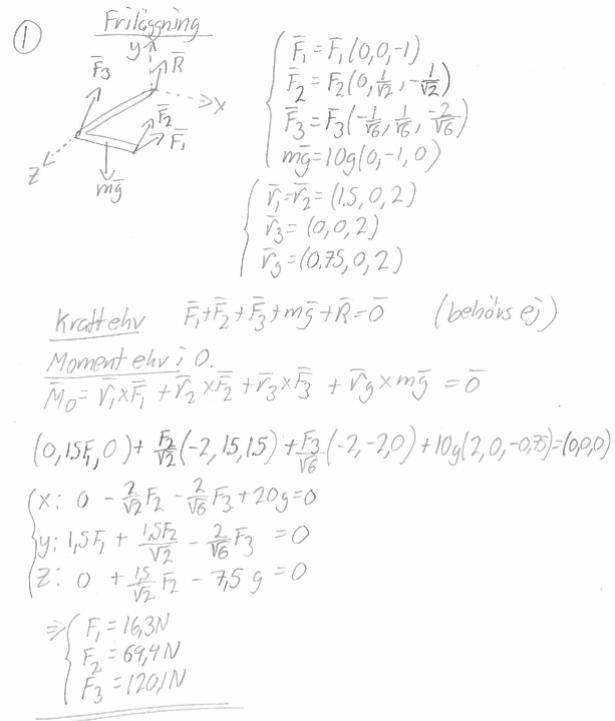 ① Friläggning
y R̄
F̄₃
x
F̄₂
F̄₁
z
mḡ
F̄₁ = F₁(0,0,-1)
F̄₂ = F₂(0, 1/√2, -1/√2)
F̄₃ = F₃(-1/√6, 1/√6, -2/√6)
mḡ = 10g(0,-1,0)
r̄₁ = r̄₂ = (1.5, 0, 2)
r̄₃ = (0,0,2)
r̄g = (0.75, 0, 2)
Kraftekv F̄₁+F̄₂+F̄₃+mḡ+R̄=0̄ (behövs ej)
Moment ekv i O.
M̄₀ = r̄₁×F̄₁ + r̄₂×F̄₂ + r̄₃×F̄₃ + r̄g×mḡ = 0̄
(0, 1.5F₁, 0) + F₂/√2 (-2, 1.5, 1.5) + F₃/√6 (-2, -2, 0) + 10g(2, 0, -0,75) = (0,0,0)
x: 0 - 2/√2 F₂ - 2/√6 F₃ + 20g = 0
y: 1,5F₁ + 1,5F₂/√2 - 2/√6 F₃ = 0
z: 0 + 1.5/√2 F₂ - 7,5 g = 0
⇒ F₁ = 16,3N
F₂ = 69,4N
F₃ = 120,1N